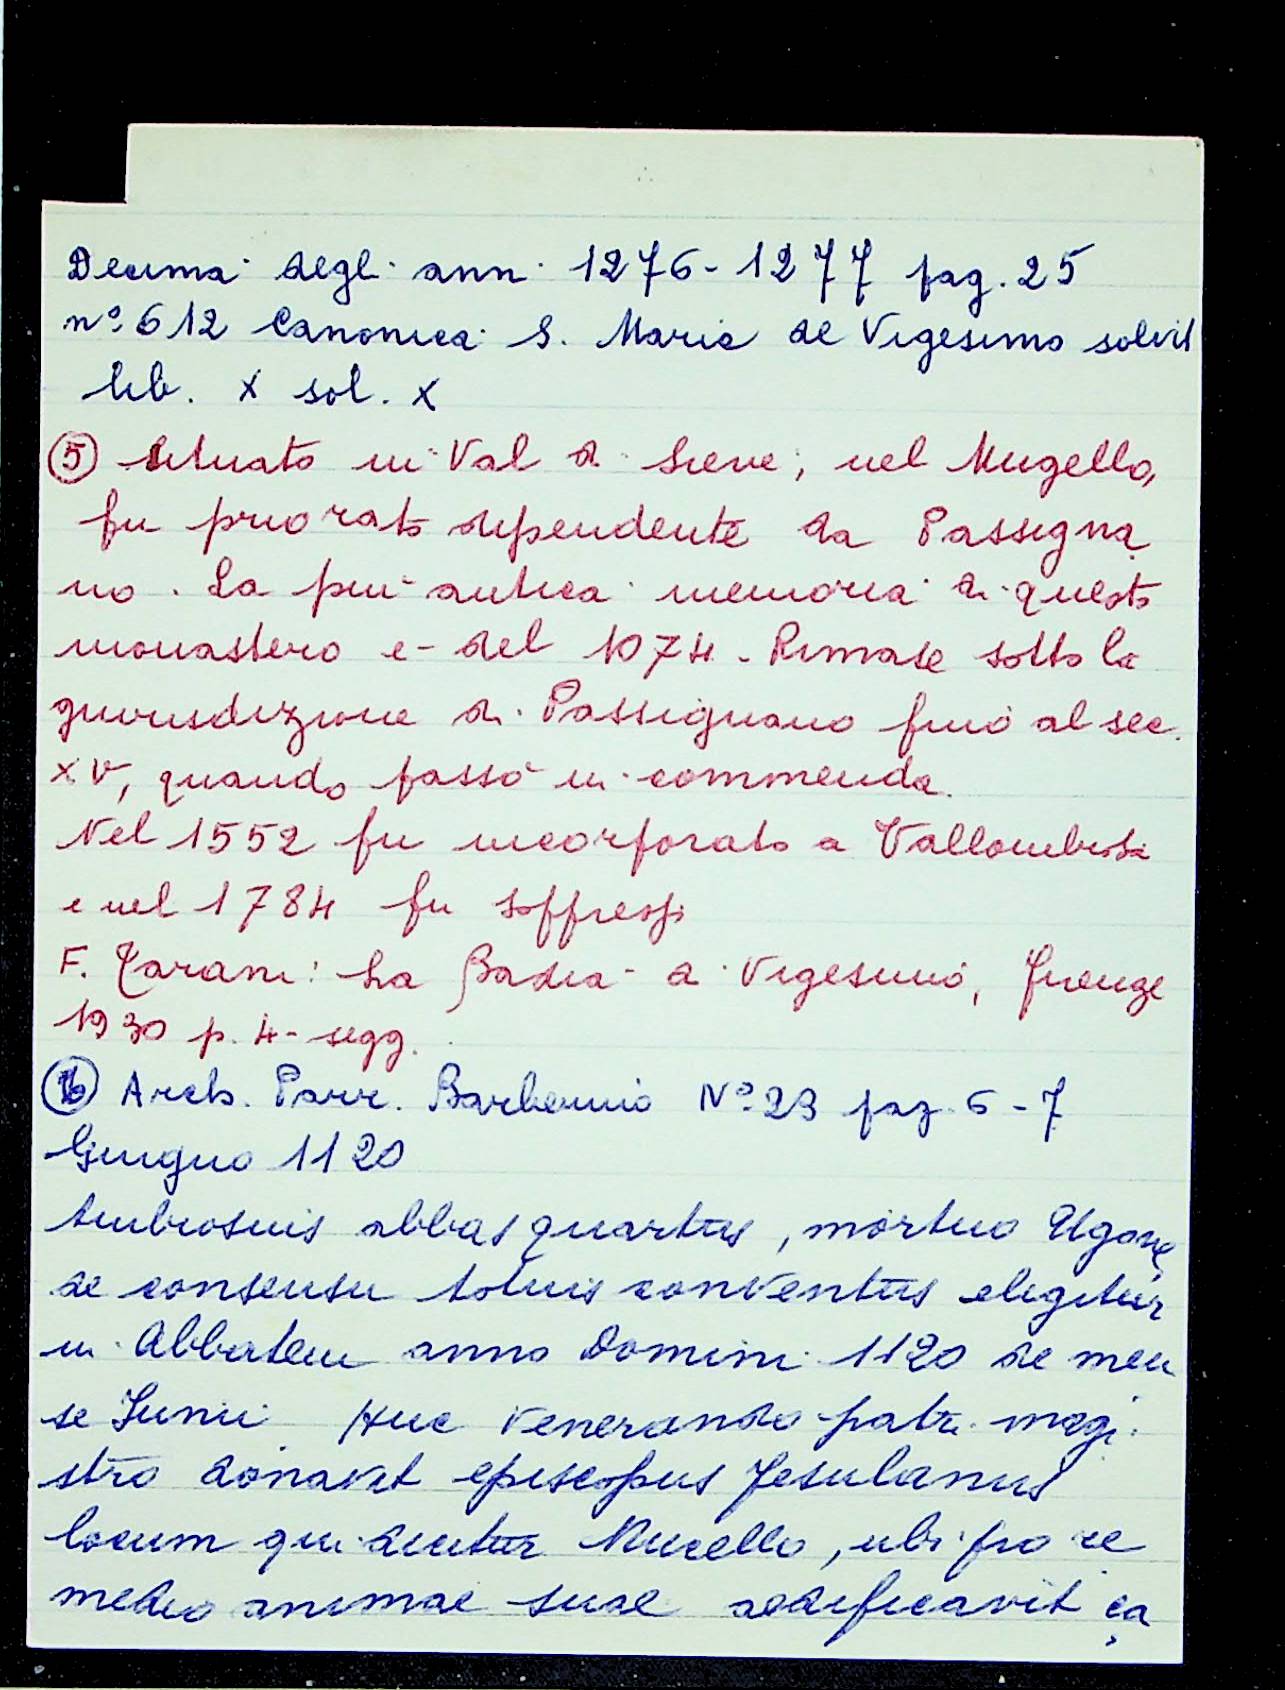 Decima degli anni 1276-1277 pag. 25
n° 612 Canonica S. Maria de Vigesimo solvit
lib. X sol. X
(5) Situato in Val di Sieve, nel Mugello,
fu priorato dipendente da Passigna
no. La più antica memoria di questo
monastero è del 1074. Rimase sotto la
giurisdizione di Passignano fino al sec.
XV, quando passò in commenda.
Nel 1552 fu incorporato a Vallombrosa
e nel 1784 fu soppressi
F. Tarani: La Badia a Vigesimo, Firenze
1930 p. 4-segg.
(6) Arch. Parr. Barberino N° 23 pag. 6-7
Giugno 1120
Ambrosius abbas quartus, mortuo Ugone
de consensu totius conventus eligitur
in Abbatem anno Domini 1120 de men
se Junii Huic venerando patri magi
stro donavit episcopus Fesulanus
locum qui dicitur Mucello, ubi pro re
medio animae suae aedificavit ca